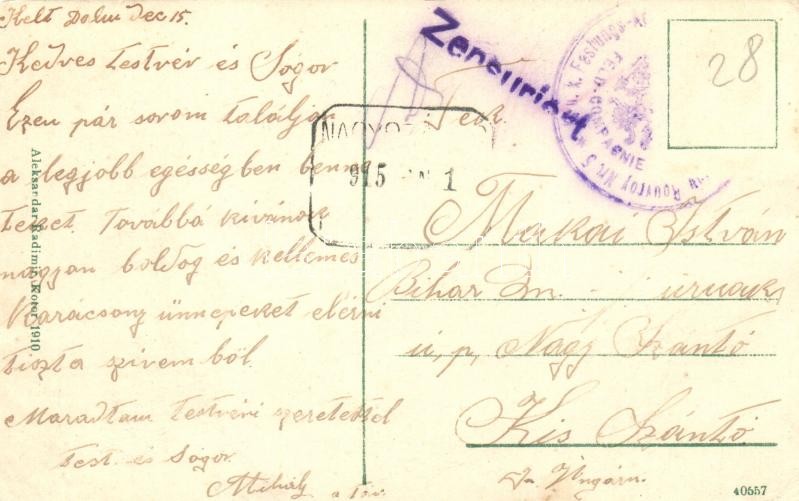 Kelt Dolm Dec 15.
Kedves testvér és Sógor
Ezen pár sorom találjon
a legjobb egésségben benne
teket. Továbbá kivánok
nagyon boldog és kellemes
Karácsony ünnepeket elérni
tiszta szivem ből.
Maradtam testvéri szeretettel
test. és Sógor
Mihály
Aleksandar Radimir, Kotor, 1910.
Zensuriert
k. u. k. Festungs-Art
FELD-COMPAGNIE
Rouvroy Nr. 5
NAGYSZ
915 1
28
Tek.
Makai István
Bihar m. urnak
u, p, Nagy Szántó
Kis Szántó
In Ungarn.
40557